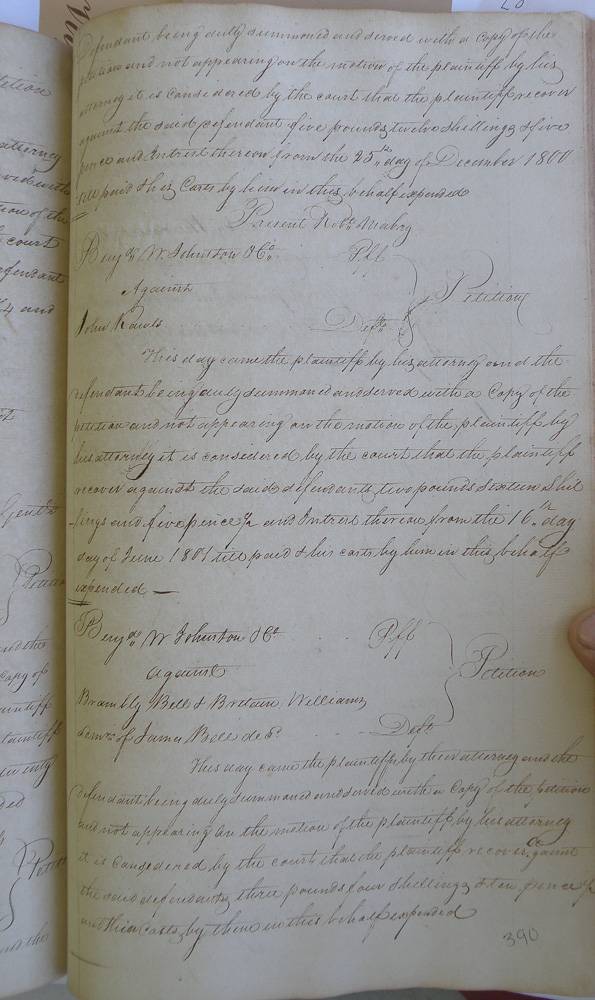 Defendant being duly summoned and served with a Copy of the
petition and not appearing on the motion of the plaintiff by his
attorney it is considered by the court that the plaintiff recover
against the said defendant five pounds twelve shillings & five
pence and Intrest thereon from the 25th day of December 1800
till paid & his Costs by him in this behalf expended
Present Robt. Mabry
Benja. W. Johnston & Co. Plff
Against
John Rawls Deft.
Petition
This day came the plaintiff by his attorney and the
defendant being duly summoned and served with a Copy of the
petition and not appearing on the motion of the plaintiff by
his attorney it is considered by the court that the plaintiff
recover against the said defendants two pounds sixteen shil
lings and five pence ½ and Intrest thereon from the 16th day
day of June 1801 till paid & his costs by him in this behalf
expended —
Benja. W Johnston & Co. Plff
against
Brambly Bell & Britain Williams
admrs. of James Bell decd. Debt
Petition
This day came the plaintiffs by their attorney and the
defendant being duly summoned and served with a Copy of the petition
and not appearing on the motion of the plaintiff by his attorney
it is considered by the court that the plaintiff recover against
the said defendants three pounds four shillings & ten pence ½
and their Costs by them in this behalf expended
390